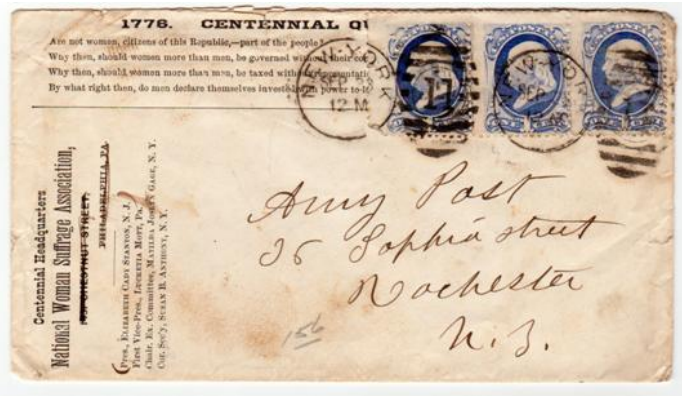 1776. CENTENNIAL QU
Are not women, citizens of this Republic,—part of the people?
Why then, should women more than men, be governed without their con
Why then, should women more than men, be taxed without representati
By what right then, do men declare themselves invested with power to
NEW-YORK
SEP 28
12 M
17
NEW-YORK
SEP
U.S. POSTAGE
ONE CENT
Centennial Headquarters
National Woman Suffrage Association,
CHESTNUT STREET,
PHILADELPHIA, PA.
Pres., ELIZABETH CADY STANTON, N. J.
First Vice-Pres., LUCRETIA MOTT, Pa.
Chair. Ex. Committee, MATILDA JOSLYN GAGE, N. Y.
Cor. Sec'y, SUSAN B. ANTHONY, N. Y.
Amy Post
36 Sophia street
Rochester
N. Y.
156